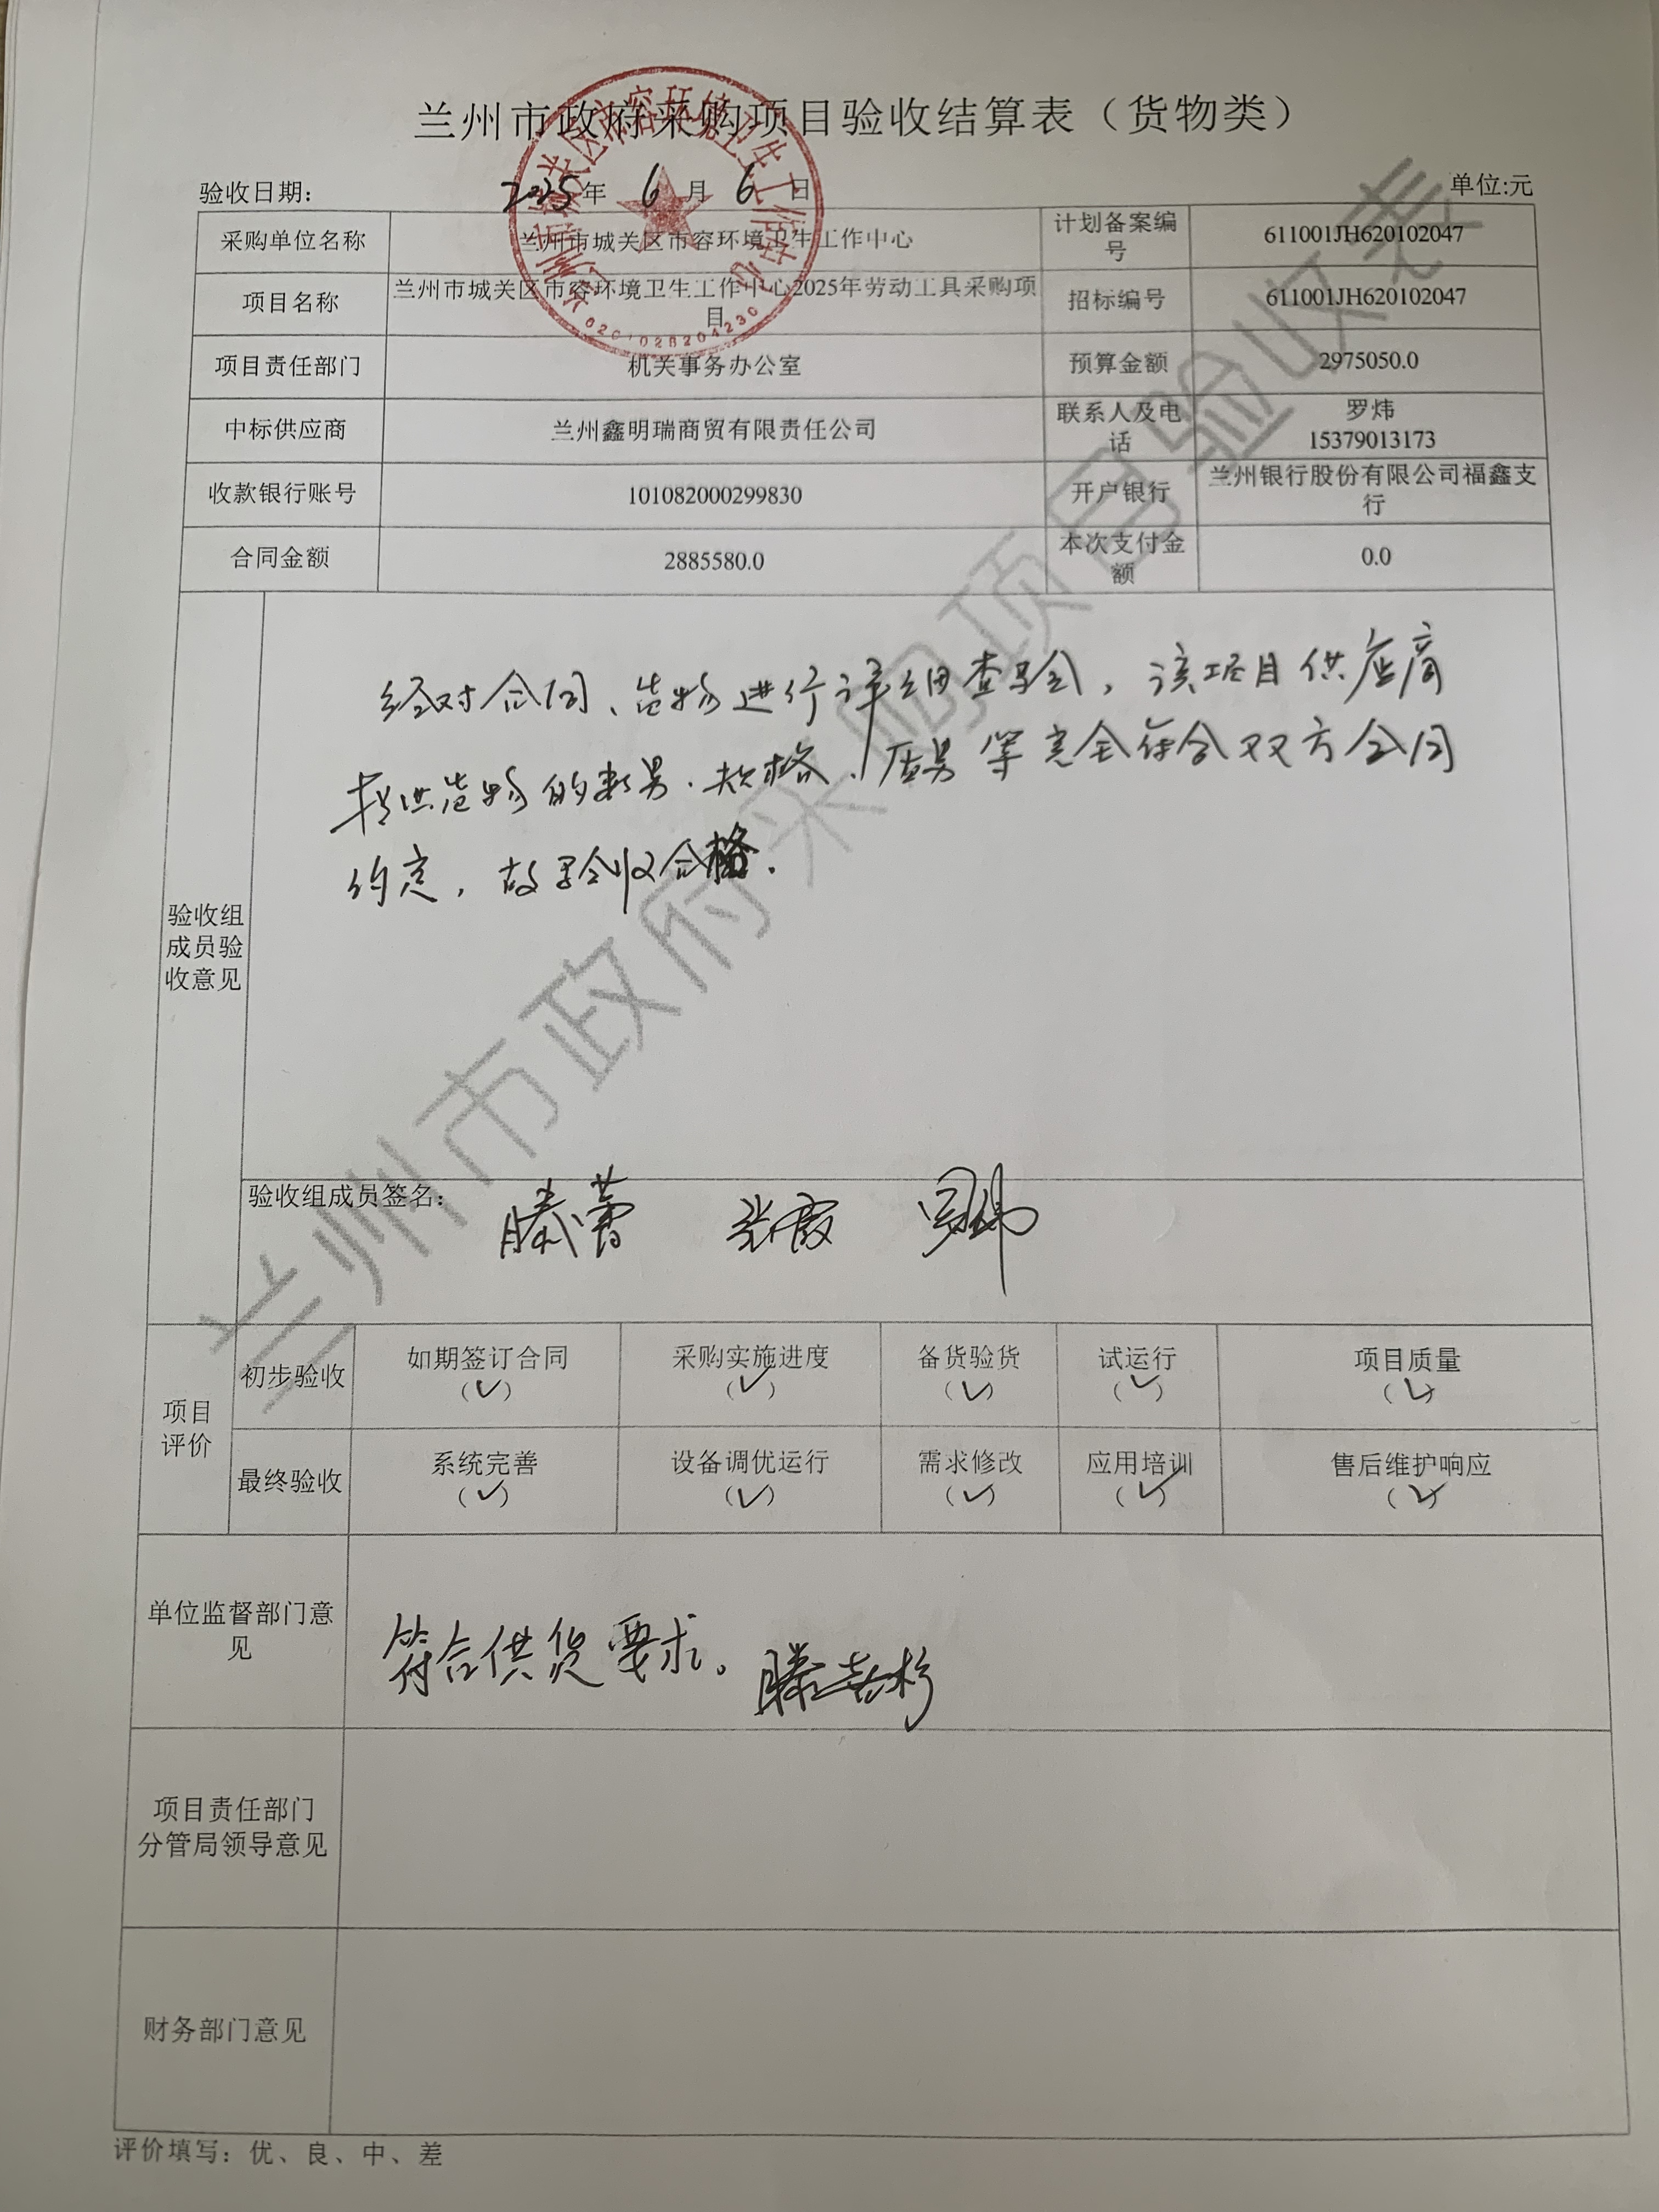 兰州市政府采购项目验收结算表（货物类）
验收日期： 2025年 6月 6日 单位:元
采购单位名称 兰州市城关区市容环境卫生工作中心 计划备案编号 611001JH620102047
项目名称 兰州市城关区市容环境卫生工作中心2025年劳动工具采购项目 招标编号 611001JH620102047
项目责任部门 机关事务办公室 预算金额 2975050.0
中标供应商 兰州鑫明瑞商贸有限责任公司 联系人及电话 罗炜 15379013173
收款银行账号 101082000299830 开户银行 兰州银行股份有限公司福鑫支行
合同金额 2885580.0 本次支付金额 0.0
验收组成员验收意见
经对合同、货物进行详细查验，该项目供应商
提供货物的数量、规格、质量等完全符合双方合同
约定，故验收合格.
验收组成员签名： 滕蕾 张霞 罗炜
项目评价
初步验收 如期签订合同（✓） 采购实施进度（✓） 备货验货（✓） 试运行（✓） 项目质量（✓）
最终验收 系统完善（✓） 设备调优运行（✓） 需求修改（✓） 应用培训（✓） 售后维护响应（✓）
单位监督部门意见 符合供货要求。
项目责任部门
分管局领导意见
财务部门意见
评价填写：优、良、中、差
兰州市城关区市容环境卫生工作中心
兰州市政府采购项目验收表